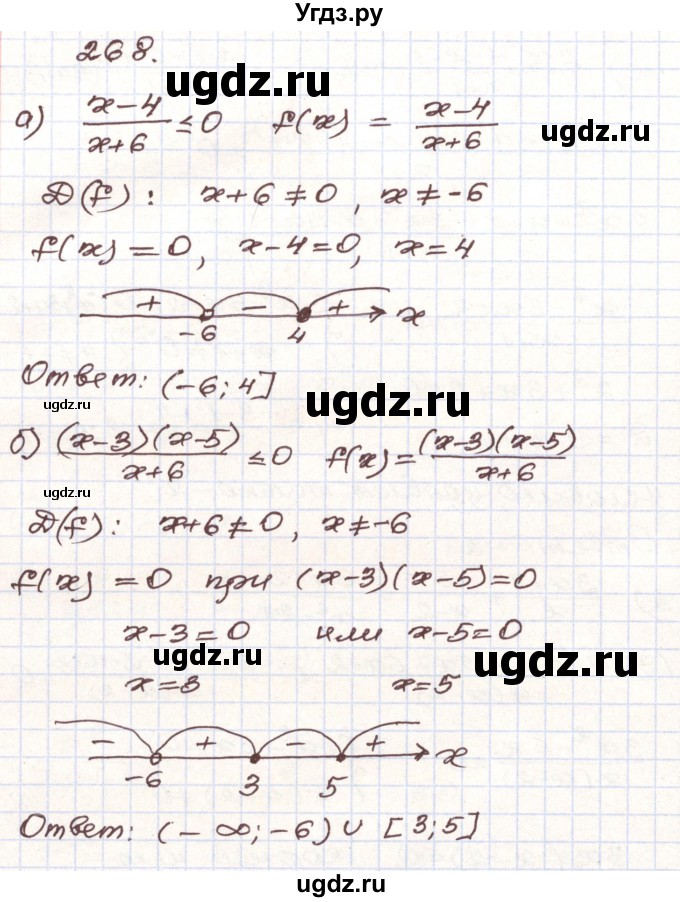 Угдз.ру
268.
ugdz.ru
а) x-4/x+6 ≤ 0 f(x) = x-4/x+6
ugdz.ru
D(f): x+6≠0, x≠-6
f(x)=0, x-4=0, x=4
+ - + x
-6 4
Ответ: (-6; 4]
ugdz.ru ugdz.ru
б) (x-3)(x-5)/x+6 ≤ 0 f(x)=(x-3)(x-5)/x+6
ugdz.ru
D(f): x+6≠0, x≠-6
f(x)=0 при (x-3)(x-5)=0
x-3=0 или x-5=0
ugdz.ru ugdz.ru
x=3 x=5
- + - + x
-6 3 5
Ответ: (-∞; -6) ∪ [3; 5]
ugdz.ru